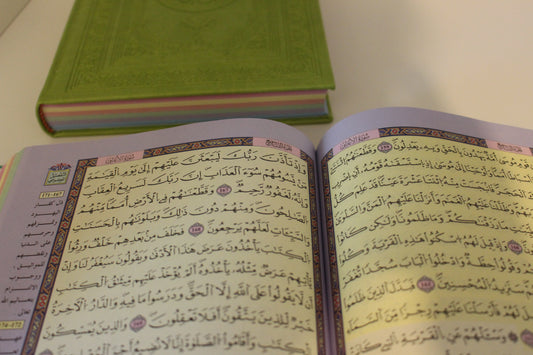 سورة الأعراف
وَإِذْ تَأَذَّنَ رَبُّكَ لَيَبْعَثَنَّ عَلَيْهِمْ إِلَىٰ يَوْمِ الْقِيَامَةِ
مَن يَسُومُهُمْ سُوءَ الْعَذَابِ إِنَّ رَبَّكَ لَسَرِيعُ الْعِقَابِ
وَإِنَّهُ لَغَفُورٌ رَّحِيمٌ ١٦٧ وَقَطَّعْنَاهُمْ فِي الْأَرْضِ أُمَمًا مِّنْهُمُ
الصَّالِحُونَ وَمِنْهُمْ دُونَ ذَٰلِكَ وَبَلَوْنَاهُم بِالْحَسَنَاتِ
وَالسَّيِّئَاتِ لَعَلَّهُمْ يَرْجِعُونَ ١٦٨ فَخَلَفَ مِن بَعْدِهِمْ خَلْفٌ وَرِثُوا
الْكِتَابَ يَأْخُذُونَ عَرَضَ هَٰذَا الْأَدْنَىٰ وَيَقُولُونَ سَيُغْفَرُ لَنَا وَإِن
يَأْتِهِمْ عَرَضٌ مِّثْلُهُ يَأْخُذُوهُ أَلَمْ يُؤْخَذْ عَلَيْهِم مِّيثَاقُ الْكِتَابِ
أَن لَّا يَقُولُوا عَلَى اللَّهِ إِلَّا الْحَقَّ وَدَرَسُوا مَا فِيهِ وَالدَّارُ الْآخِرَةُ
خَيْرٌ لِّلَّذِينَ يَتَّقُونَ أَفَلَا تَعْقِلُونَ ١٦٩ وَالَّذِينَ يُمَسِّكُونَ
بِالْكِتَابِ وَأَقَامُوا الصَّلَاةَ إِنَّا لَا نُضِيعُ أَجْرَ
سورة الأعراف
مُوسَىٰ أُمَّةٌ يَهْدُونَ بِالْحَقِّ وَبِهِ يَعْدِلُونَ ١٥٩ وَقَطَّعْنَاهُمُ
وَأَوْحَيْنَا إِلَىٰ مُوسَىٰ إِذِ اسْتَسْقَاهُ قَوْمُهُ أَنِ
فَانبَجَسَتْ مِنْهُ اثْنَتَا عَشْرَةَ عَيْنًا قَدْ عَلِمَ كُلُّ
وَظَلَّلْنَا عَلَيْهِمُ الْغَمَامَ وَأَنزَلْنَا عَلَيْهِمُ
مَا رَزَقْنَاكُمْ وَمَا ظَلَمُونَا وَلَٰكِن كَانُوا
١٦٠ وَإِذْ قِيلَ لَهُمُ اسْكُنُوا هَٰذِهِ الْقَرْيَةَ وَكُلُوا
وَقُولُوا حِطَّةٌ وَادْخُلُوا الْبَابَ سُجَّدًا نَّغْفِرْ
١٦١ فَبَدَّلَ الَّذِينَ ظَلَمُوا
قِيلَ لَهُمْ فَأَرْسَلْنَا عَلَيْهِمْ رِجْزًا مِّنَ السَّمَاءِ
١٦٢ وَاسْأَلْهُمْ عَنِ الْقَرْيَةِ الَّتِي